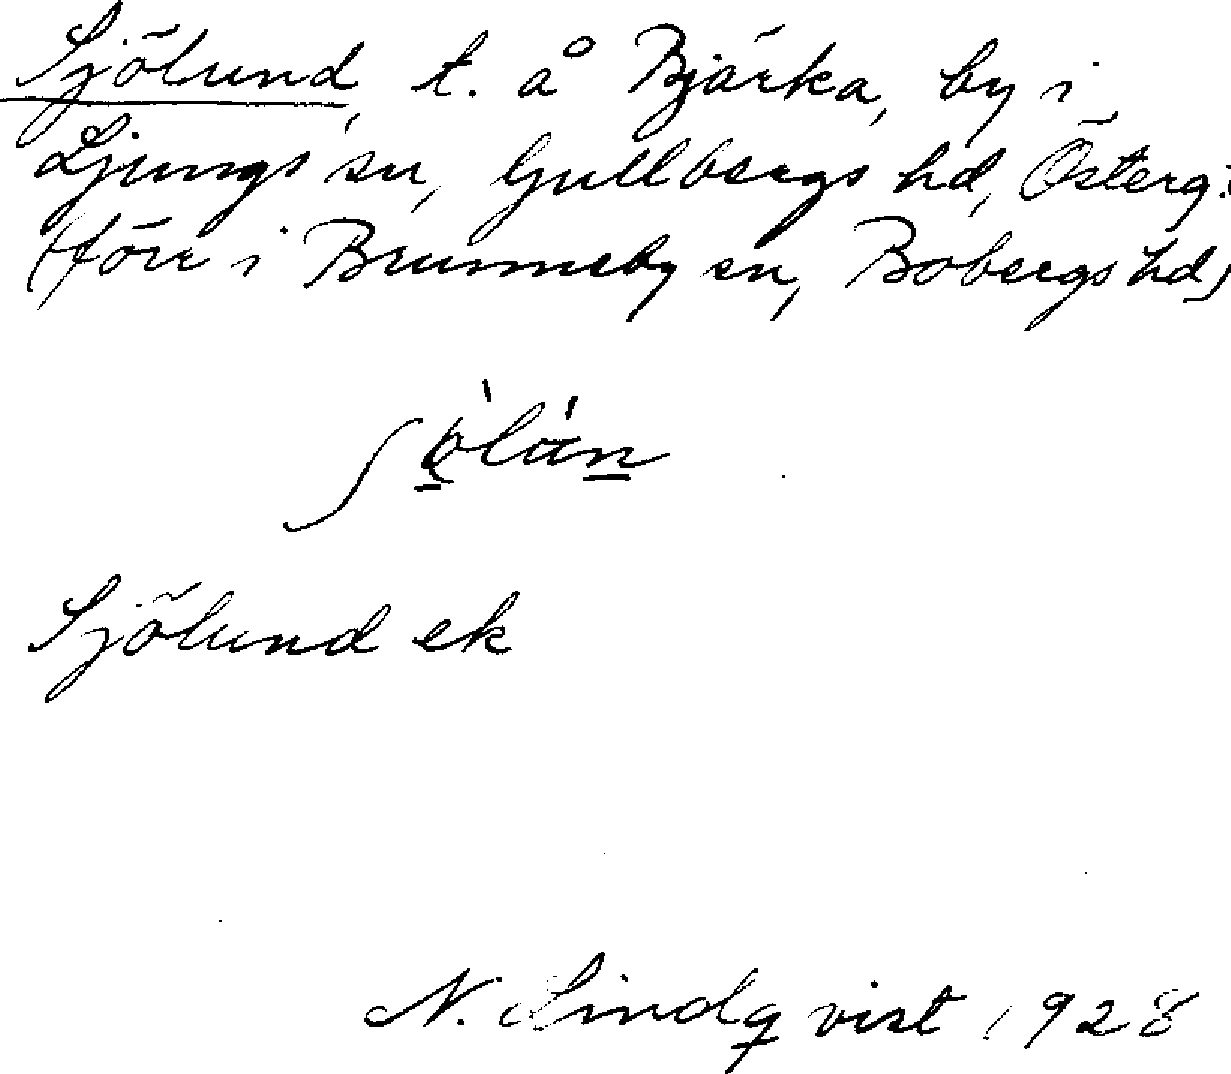 Sjölund, t. å Bjärka, by i
Ljungs sn, Gullbergs hd, Österg:
(förr i Brunneby sn, Bobergs hd)
Sjölund ek
N. Lindqvist 1928